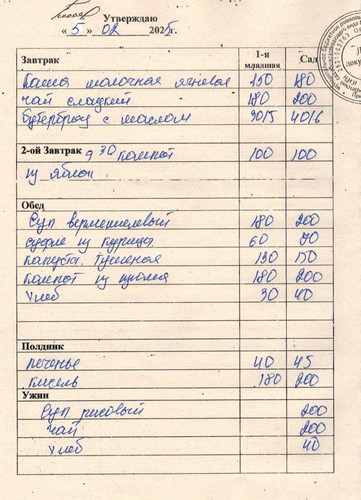 Утверждаю
« 5 » 02 2025г.
Завтрак 1-я младшая Сад
Каша молочная ячневая 150 180
Чай сладкий 180 200
Бутерброд с маслом 30/5 40/6
2-ой Завтрак 9 30 компот 100 100
из яблок
Обед
Суп вермишелевый 180 200
суфле из курицы 60 70
капуста тушеная 130 150
компот из изюма 180 200
Хлеб 30 40
Полдник
печенье 40 45
кисель 180 200
Ужин
Суп рисовый 200
Чай 200
Хлеб 40